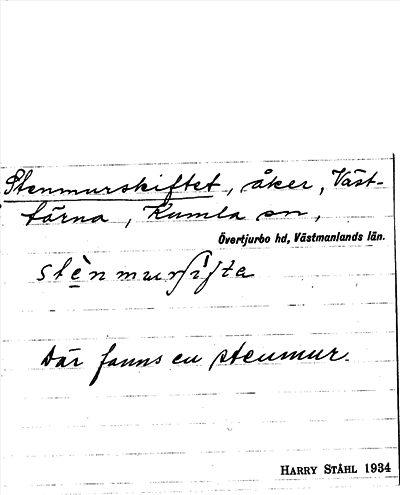 Stenmurskiftet, åker, Väst-
tärna, Kumla sn,
Övertjurbo hd, Västmanlands län.
stènmurʃiʃta
Där fanns en stenmur.
HARRY STÅHL 1934